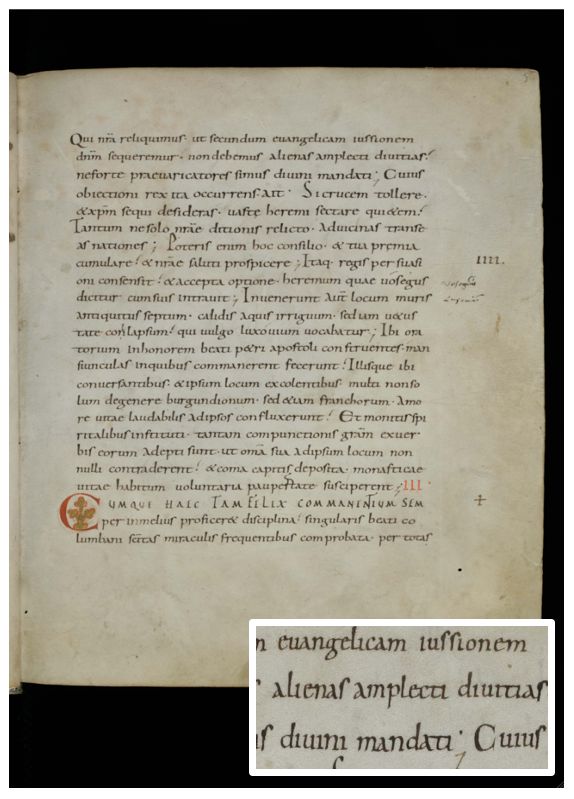 5
Qui nr̄a reliquimus· ut secundum euangelicam iussionem
dnm̄ sequeremur· non debemus alienas amplecti diuitias·
ne forte praeuaricatores simus diuini mandati; Cuius
obiectioni rex ita occurrens ait· Si crucem tollere·
& xp̄m sequi desideras· uastae heremi sectare qui&em·
Tantum ne solo nr̄ae ditionis relicto· ad uicinas transe
as nationes; Poteris enim hoc consilio· & tua premia
cumulare· & nr̄ae saluti prospicere; Itaq· regis persuasi
oni consensit· & accepta optione· heremum quae uosegus
dicitur cum suis intrauit; Inuenerunt aut̄ locum muris
antiquitus septum· calidis aquis irriguum· sed iam u&us
tate conlapsum· qui uulgo luxouium uocabatur; Ibi ora
torium in honorem beati p&ri apostoli construentes· man
siunculas in quibus commanerent fecerunt· Illisque ibi
conuersantibus· & ipsum locum excolentibus· multi non so
lum de genere burgundionum· sed &iam franchorum· amo
re uitae laudabilis ad ipsos confluxerunt· Et monitis spi
ritalibus instituti· tantam compunctionis gra͞m exuer
bis eorum adepti sunt· ut om̄a sua ad ipsum locum non
nulli contraderent· & coma capitis deposita· monasticae
uitae habitum uoluntaria paupertate susciperent; III
CUMQUE HAEC TAM FELIX COMMANENTIUM SEM
per in melius proficer& disciplina· singularis beati co
lumbani sc̄itas miraculis frequentibus comprobata· per totas
IIII.
+
n euangelicam iussionem
s alienas amplecti diuitias
us diuini mandati; Cuius